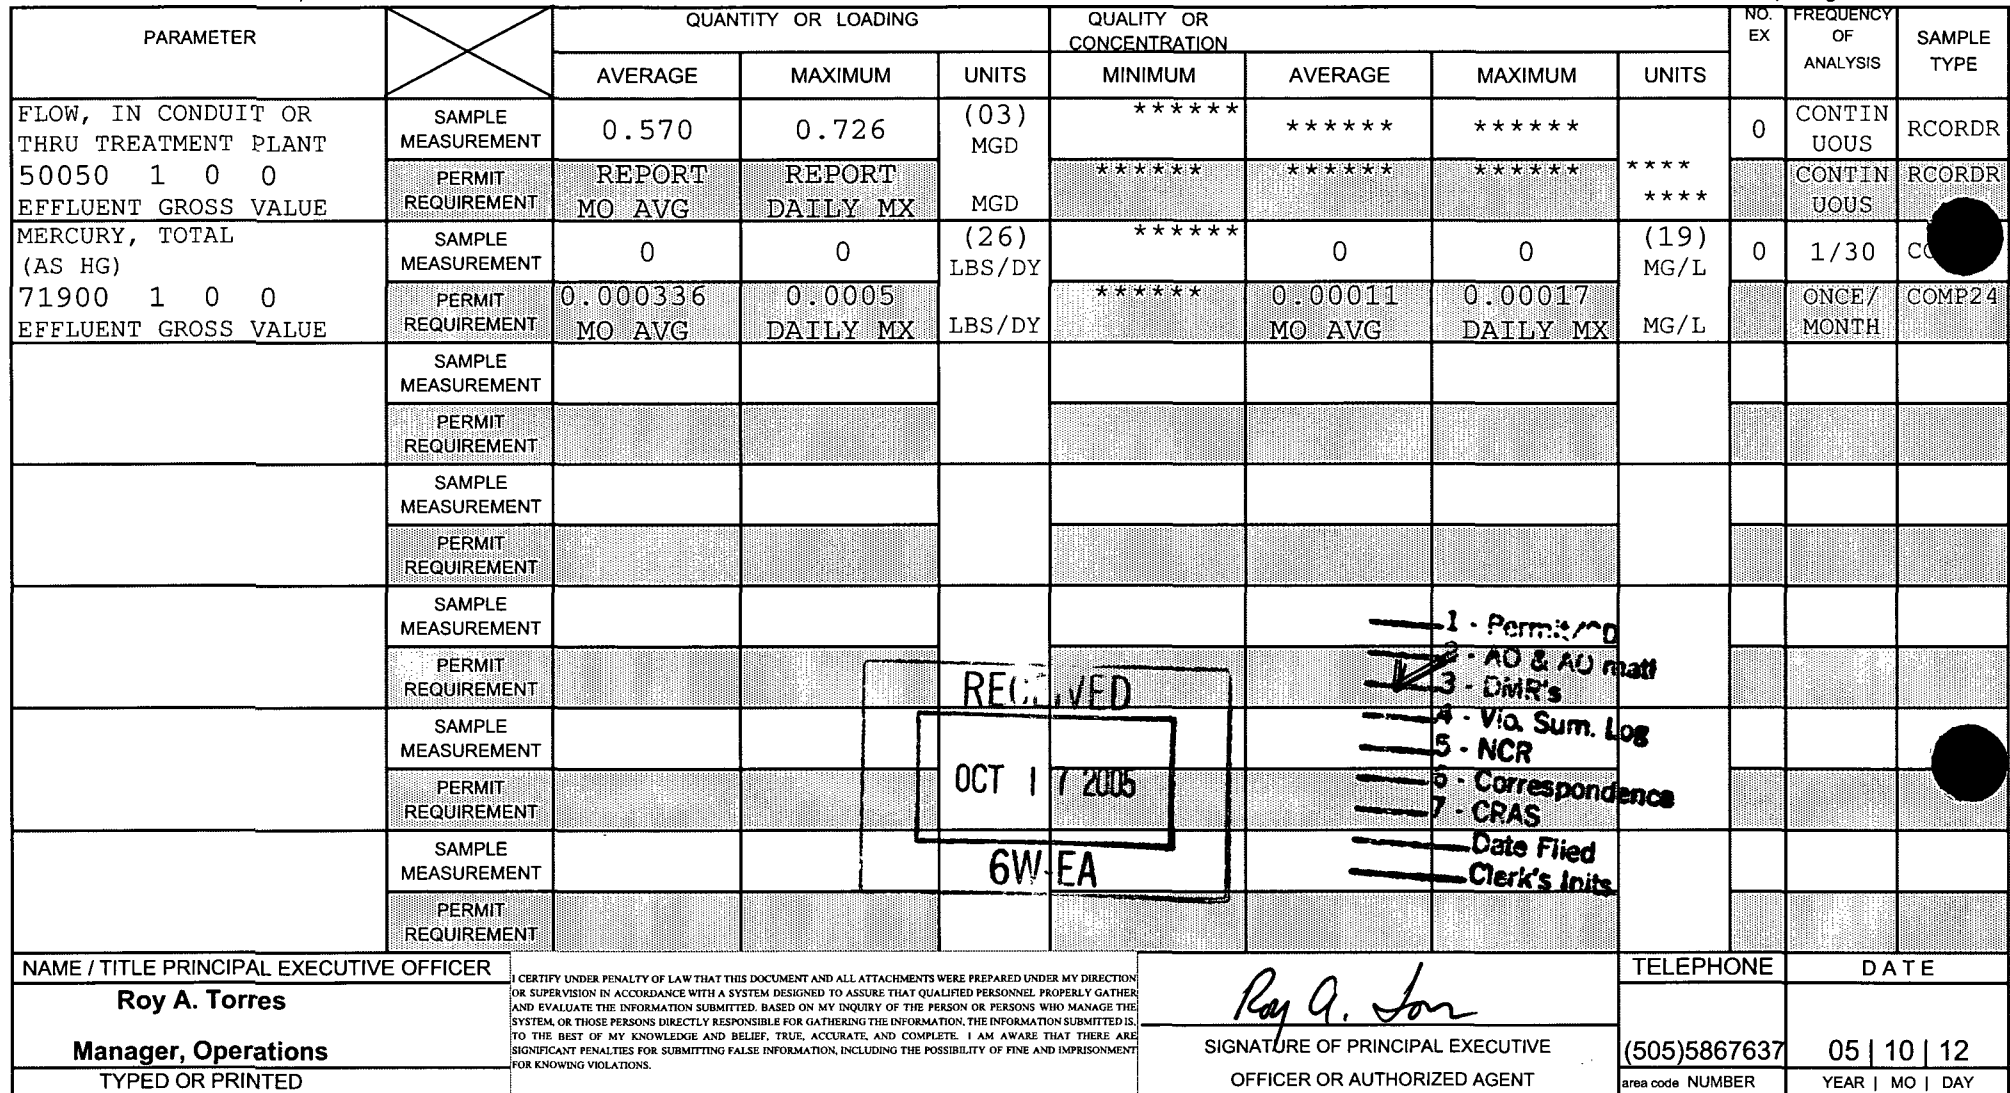 PARAMETER
QUANTITY OR LOADING
QUALITY OR
CONCENTRATION
NO.
EX
FREQUENCY
OF
ANALYSIS
SAMPLE
TYPE
AVERAGE MAXIMUM UNITS MINIMUM AVERAGE MAXIMUM UNITS
FLOW, IN CONDUIT OR
THRU TREATMENT PLANT
50050 1 0 0
EFFLUENT GROSS VALUE
SAMPLE
MEASUREMENT
0.570 0.726 (03)
MGD
****** ****** ****** 0 CONTIN
UOUS
RCORDR
PERMIT
REQUIREMENT
REPORT
MO AVG
REPORT
DAILY MX
MGD
****** ****** ****** ****
****
CONTIN
UOUS
RCORDR
MERCURY, TOTAL
(AS HG)
71900 1 0 0
EFFLUENT GROSS VALUE
SAMPLE
MEASUREMENT
0 0 (26)
LBS/DY
****** 0 0 (19)
MG/L
0 1/30
PERMIT
REQUIREMENT
0.000336
MO AVG
0.0005
DAILY MX
LBS/DY
****** 0.00011
MO AVG
0.00017
DAILY MX
MG/L
ONCE/
MONTH
COMP24
SAMPLE
MEASUREMENT
PERMIT
REQUIREMENT
SAMPLE
MEASUREMENT
PERMIT
REQUIREMENT
SAMPLE
MEASUREMENT
PERMIT
REQUIREMENT
SAMPLE
MEASUREMENT
PERMIT
REQUIREMENT
SAMPLE
MEASUREMENT
PERMIT
REQUIREMENT
RECEIVED
OCT 17 2005
6W-EA
1 - Permit/
2 - AO & AO matl
3 - DMR's
4 - Vio. Sum. Log
5 - NCR
6 - Correspondence
7 - CRAS
Date Filed
Clerk's Inits
NAME / TITLE PRINCIPAL EXECUTIVE OFFICER
Roy A. Torres
Manager, Operations
TYPED OR PRINTED
I CERTIFY UNDER PENALTY OF LAW THAT THIS DOCUMENT AND ALL ATTACHMENTS WERE PREPARED UNDER MY DIRECTION
OR SUPERVISION IN ACCORDANCE WITH A SYSTEM DESIGNED TO ASSURE THAT QUALIFIED PERSONNEL PROPERLY GATHER
AND EVALUATE THE INFORMATION SUBMITTED. BASED ON MY INQUIRY OF THE PERSON OR PERSONS WHO MANAGE THE
SYSTEM, OR THOSE PERSONS DIRECTLY RESPONSIBLE FOR GATHERING THE INFORMATION, THE INFORMATION SUBMITTED IS,
TO THE BEST OF MY KNOWLEDGE AND BELIEF, TRUE, ACCURATE, AND COMPLETE. I AM AWARE THAT THERE ARE
SIGNIFICANT PENALTIES FOR SUBMITTING FALSE INFORMATION, INCLUDING THE POSSIBILITY OF FINE AND IMPRISONMENT
FOR KNOWING VIOLATIONS.
Roy A.
SIGNATURE OF PRINCIPAL EXECUTIVE
OFFICER OR AUTHORIZED AGENT
TELEPHONE
(505)5867637
area code NUMBER
DATE
05 | 10 | 12
YEAR | MO | DAY